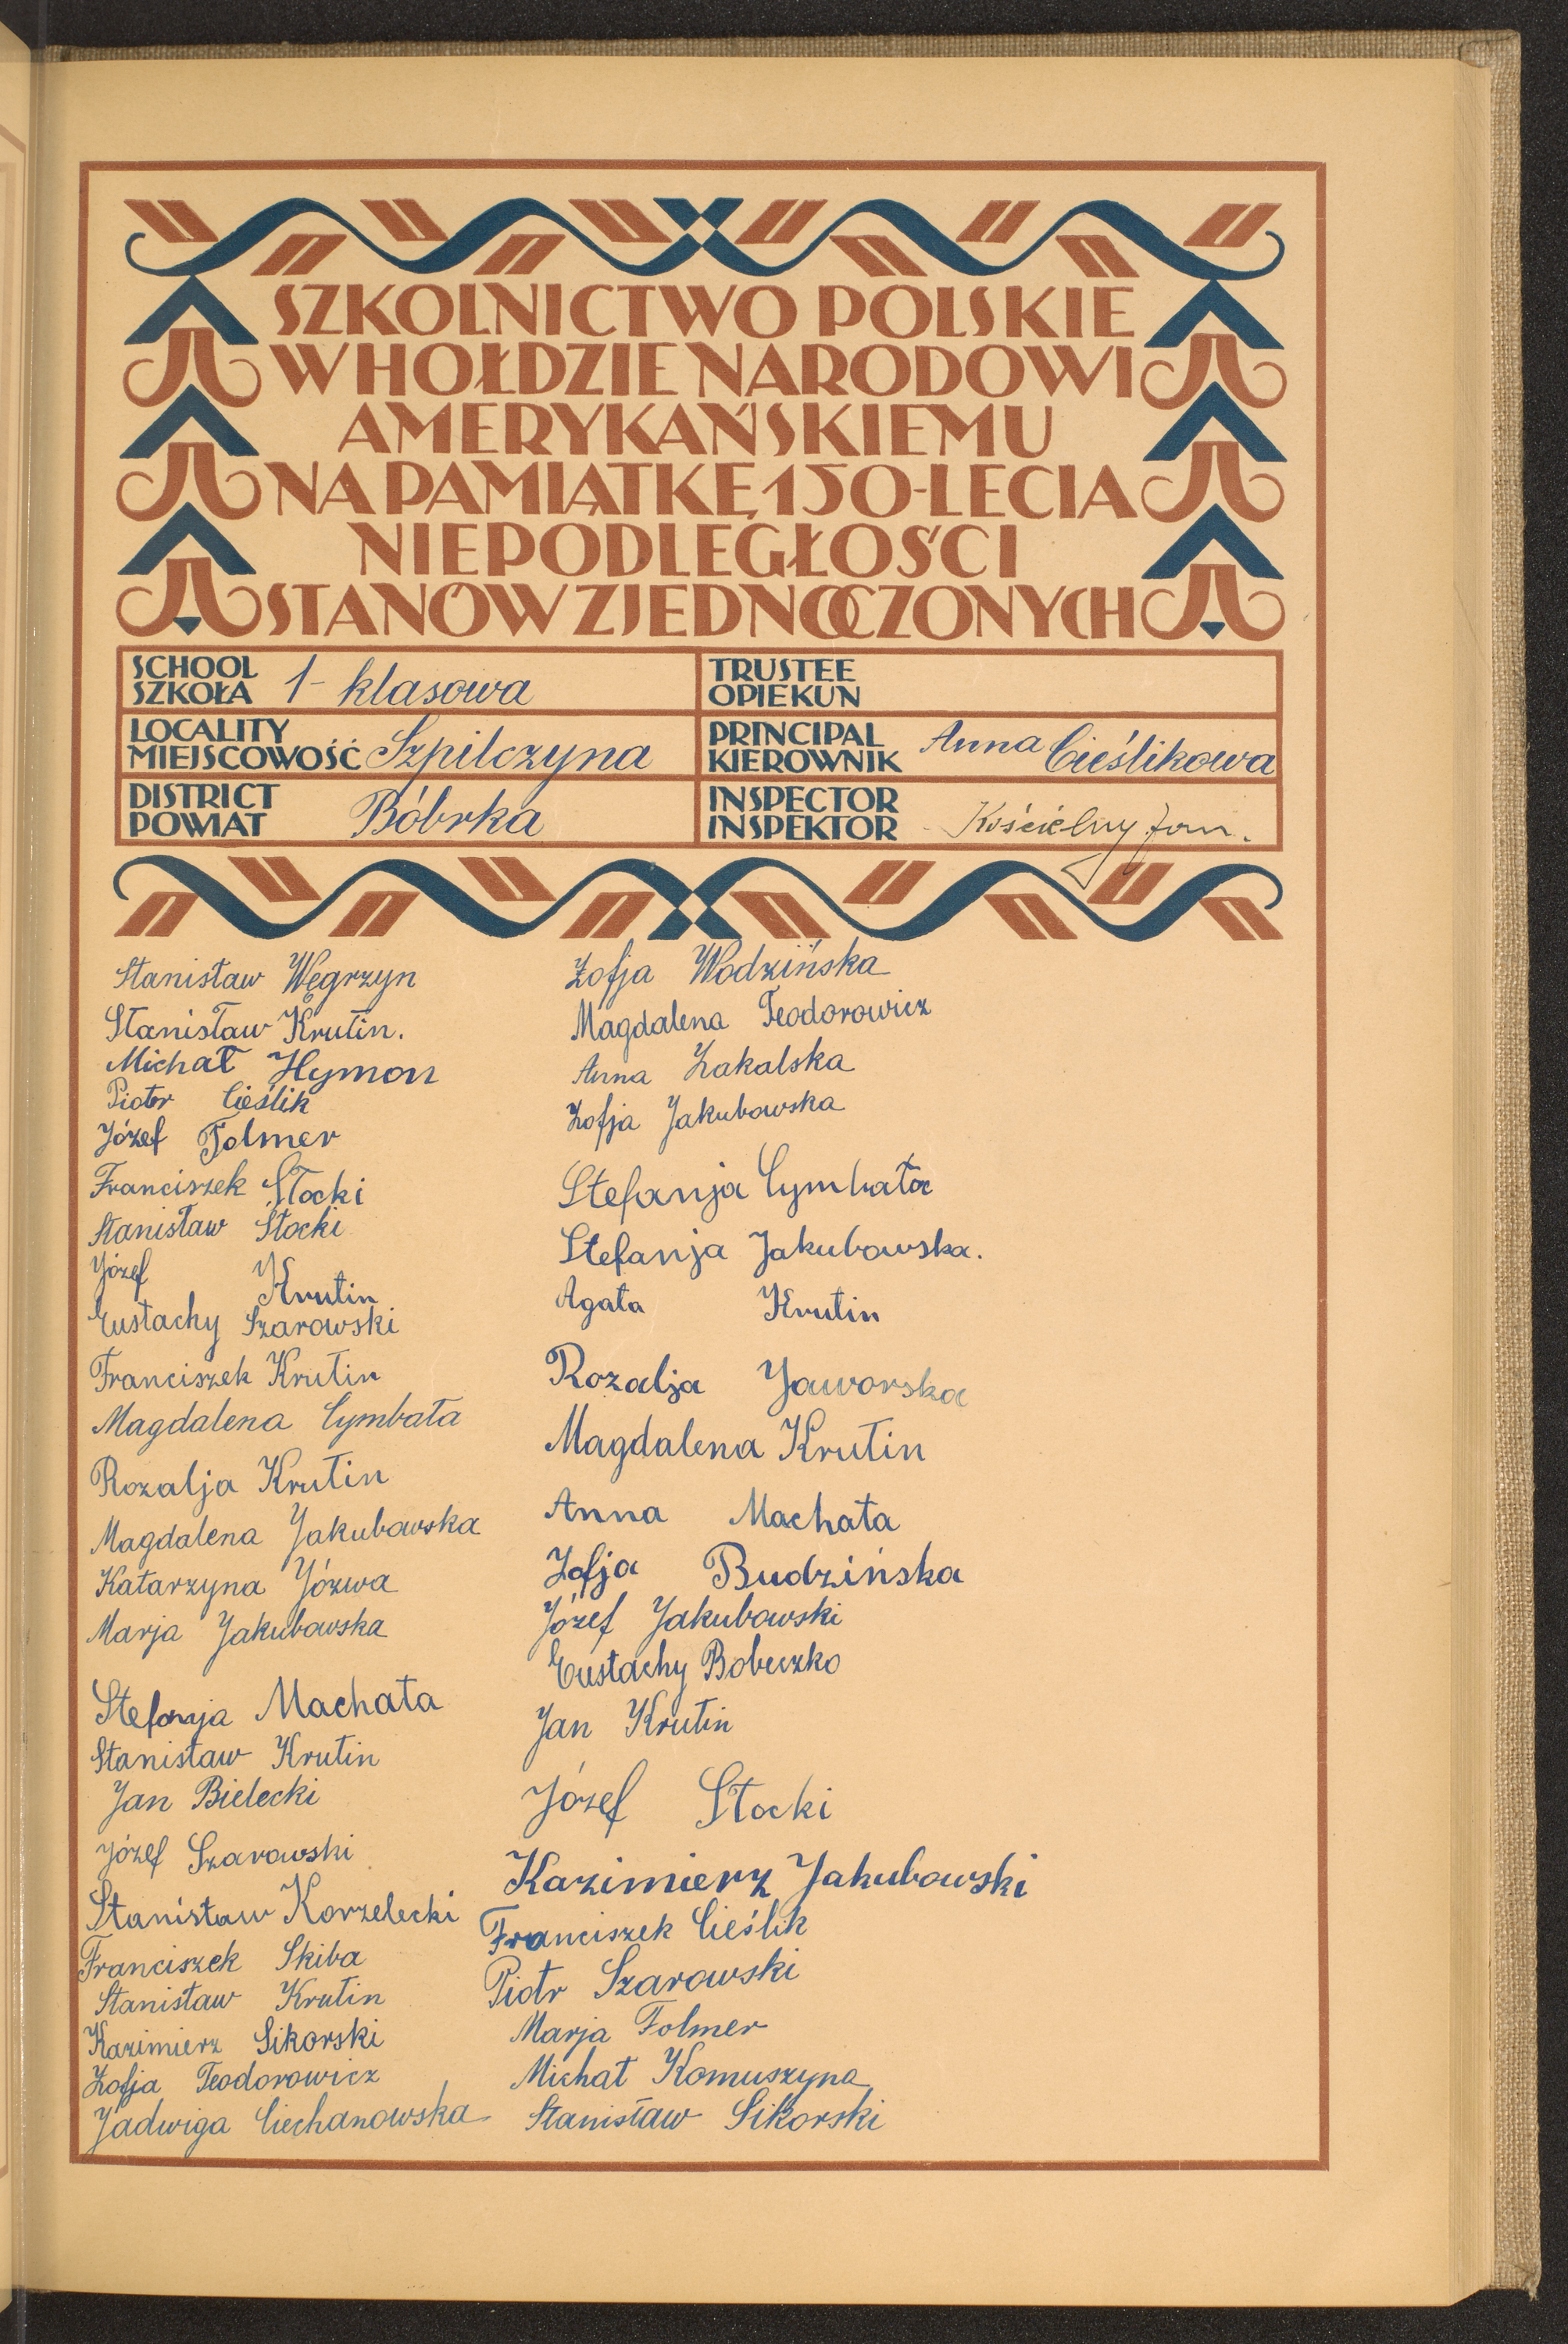 SZKOLNICTWO POLSKIE
W HOŁDZIE NARODOWI
AMERYKAŃSKIEMU
NA PAMIĄTKĘ 150-LECIA
NIEPODLEGŁOŚCI
STANÓW ZJEDNOCZONYCH
SCHOOL
SZKOŁA 1-klasowa
TRUSTEE
OPIEKUN
LOCALITY
MIEJSCOWOŚĆ Szpilczyna
PRINCIPAL
KIEROWNIK Anna Cieślikowa
DISTRICT
POWIAT Bóbrka
INSPECTOR
INSPEKTOR Kościelny Jan.
Stanisław Węgrzyn
Stanisław Krutin.
Michał Hymon
Piotr Cieślik
Józef Folmer
Franciszek Stocki
Stanisław Stocki
Józef Krutin
Eustachy Szarowski
Franciszek Krutin
Magdalena Cymbała
Rozalja Krutin
Magdalena Jakubowska
Katarzyna Józwa
Marja Jakubowska
Stefanja Machała
Stanisław Krutin
Jan Bielecki
Józef Szarowski
Stanisław Korzelecki
Franciszek Skiba
Stanisław Krutin
Kazimierz Sikorski
Zofja Teodorowicz
Jadwiga Ciechanowska
Zofja Wodzińska
Magdalena Teodorowicz
Anna Zakalska
Zofja Jakubowska
Stefanja Cymbała
Stefanja Jakubowska.
Agata Krutin
Rozalja Jaworska
Magdalena Krutin
Anna Machata
Zofja Budzińska
Józef Jakubowski
Eustachy Bobeczko
Jan Krutin
Józef Stocki
Kazimierz Jakubowski
Franciszek Cieślik
Piotr Szarowski
Marja Folmer
Michał Komuszyna
Stanisław Sikorski